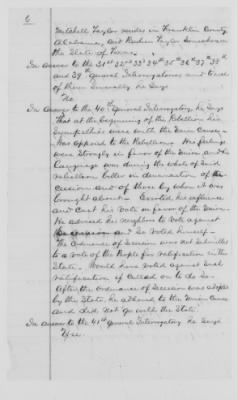 6
Mitchell Taylor resides in Franklin County
Alabama, but Reuben Taylor somewhere in
the State of Texas.
In answer to the 31st 32nd 33d 34th 35th 36th 37th 38th
and 39th General Interrogatories and each
of them severally he says
No
In answer to the 40th General Interrogatory he says
That at the beginning of the Rebellion his
Sympathies were with the Union Cause,
Was opposed to the Rebellion. His feelings
were strongly in favor of the Union and his
language was during the whole of said
rebellion bitter in denunciation of Se-
cession and of those by whom it was
brought about. Exerted his influence
and cast his vote in favor of the Union
He advised his neighbors to vote against
Secession and so voted himself.
The Ordinance of Secession was not submitted
to a vote of the People for ratification in this
State. Would have voted against such
ratification if called on to do so
After the ordinance of Secession was adopted
by the State he adhered to the Union Cause
and did not "go with the State"
In answer to the 41st General Interrogatory he says
Yes